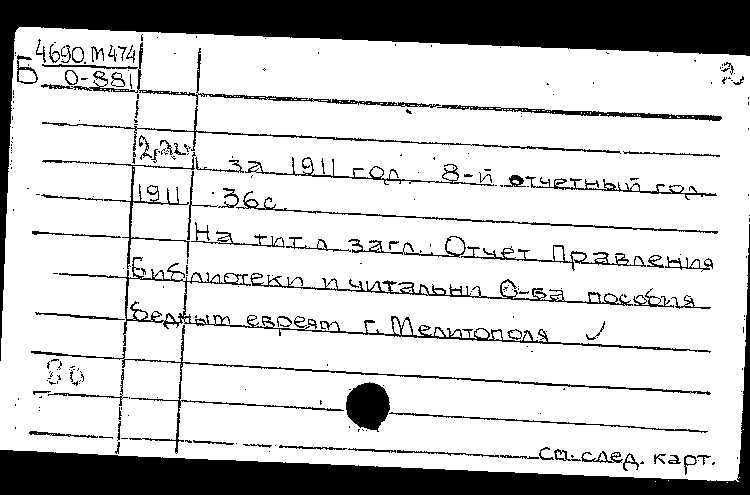 4690.М474
2
Б О-881
2,2ш. за 1911 год. 8-й отчетный год.
1911 36с.
На тит.л. загл.: Отчет Правления
библиотеки и читальни О-ва пособия
бедным евреям г. Мелитополя ✓
80
см. след. карт.